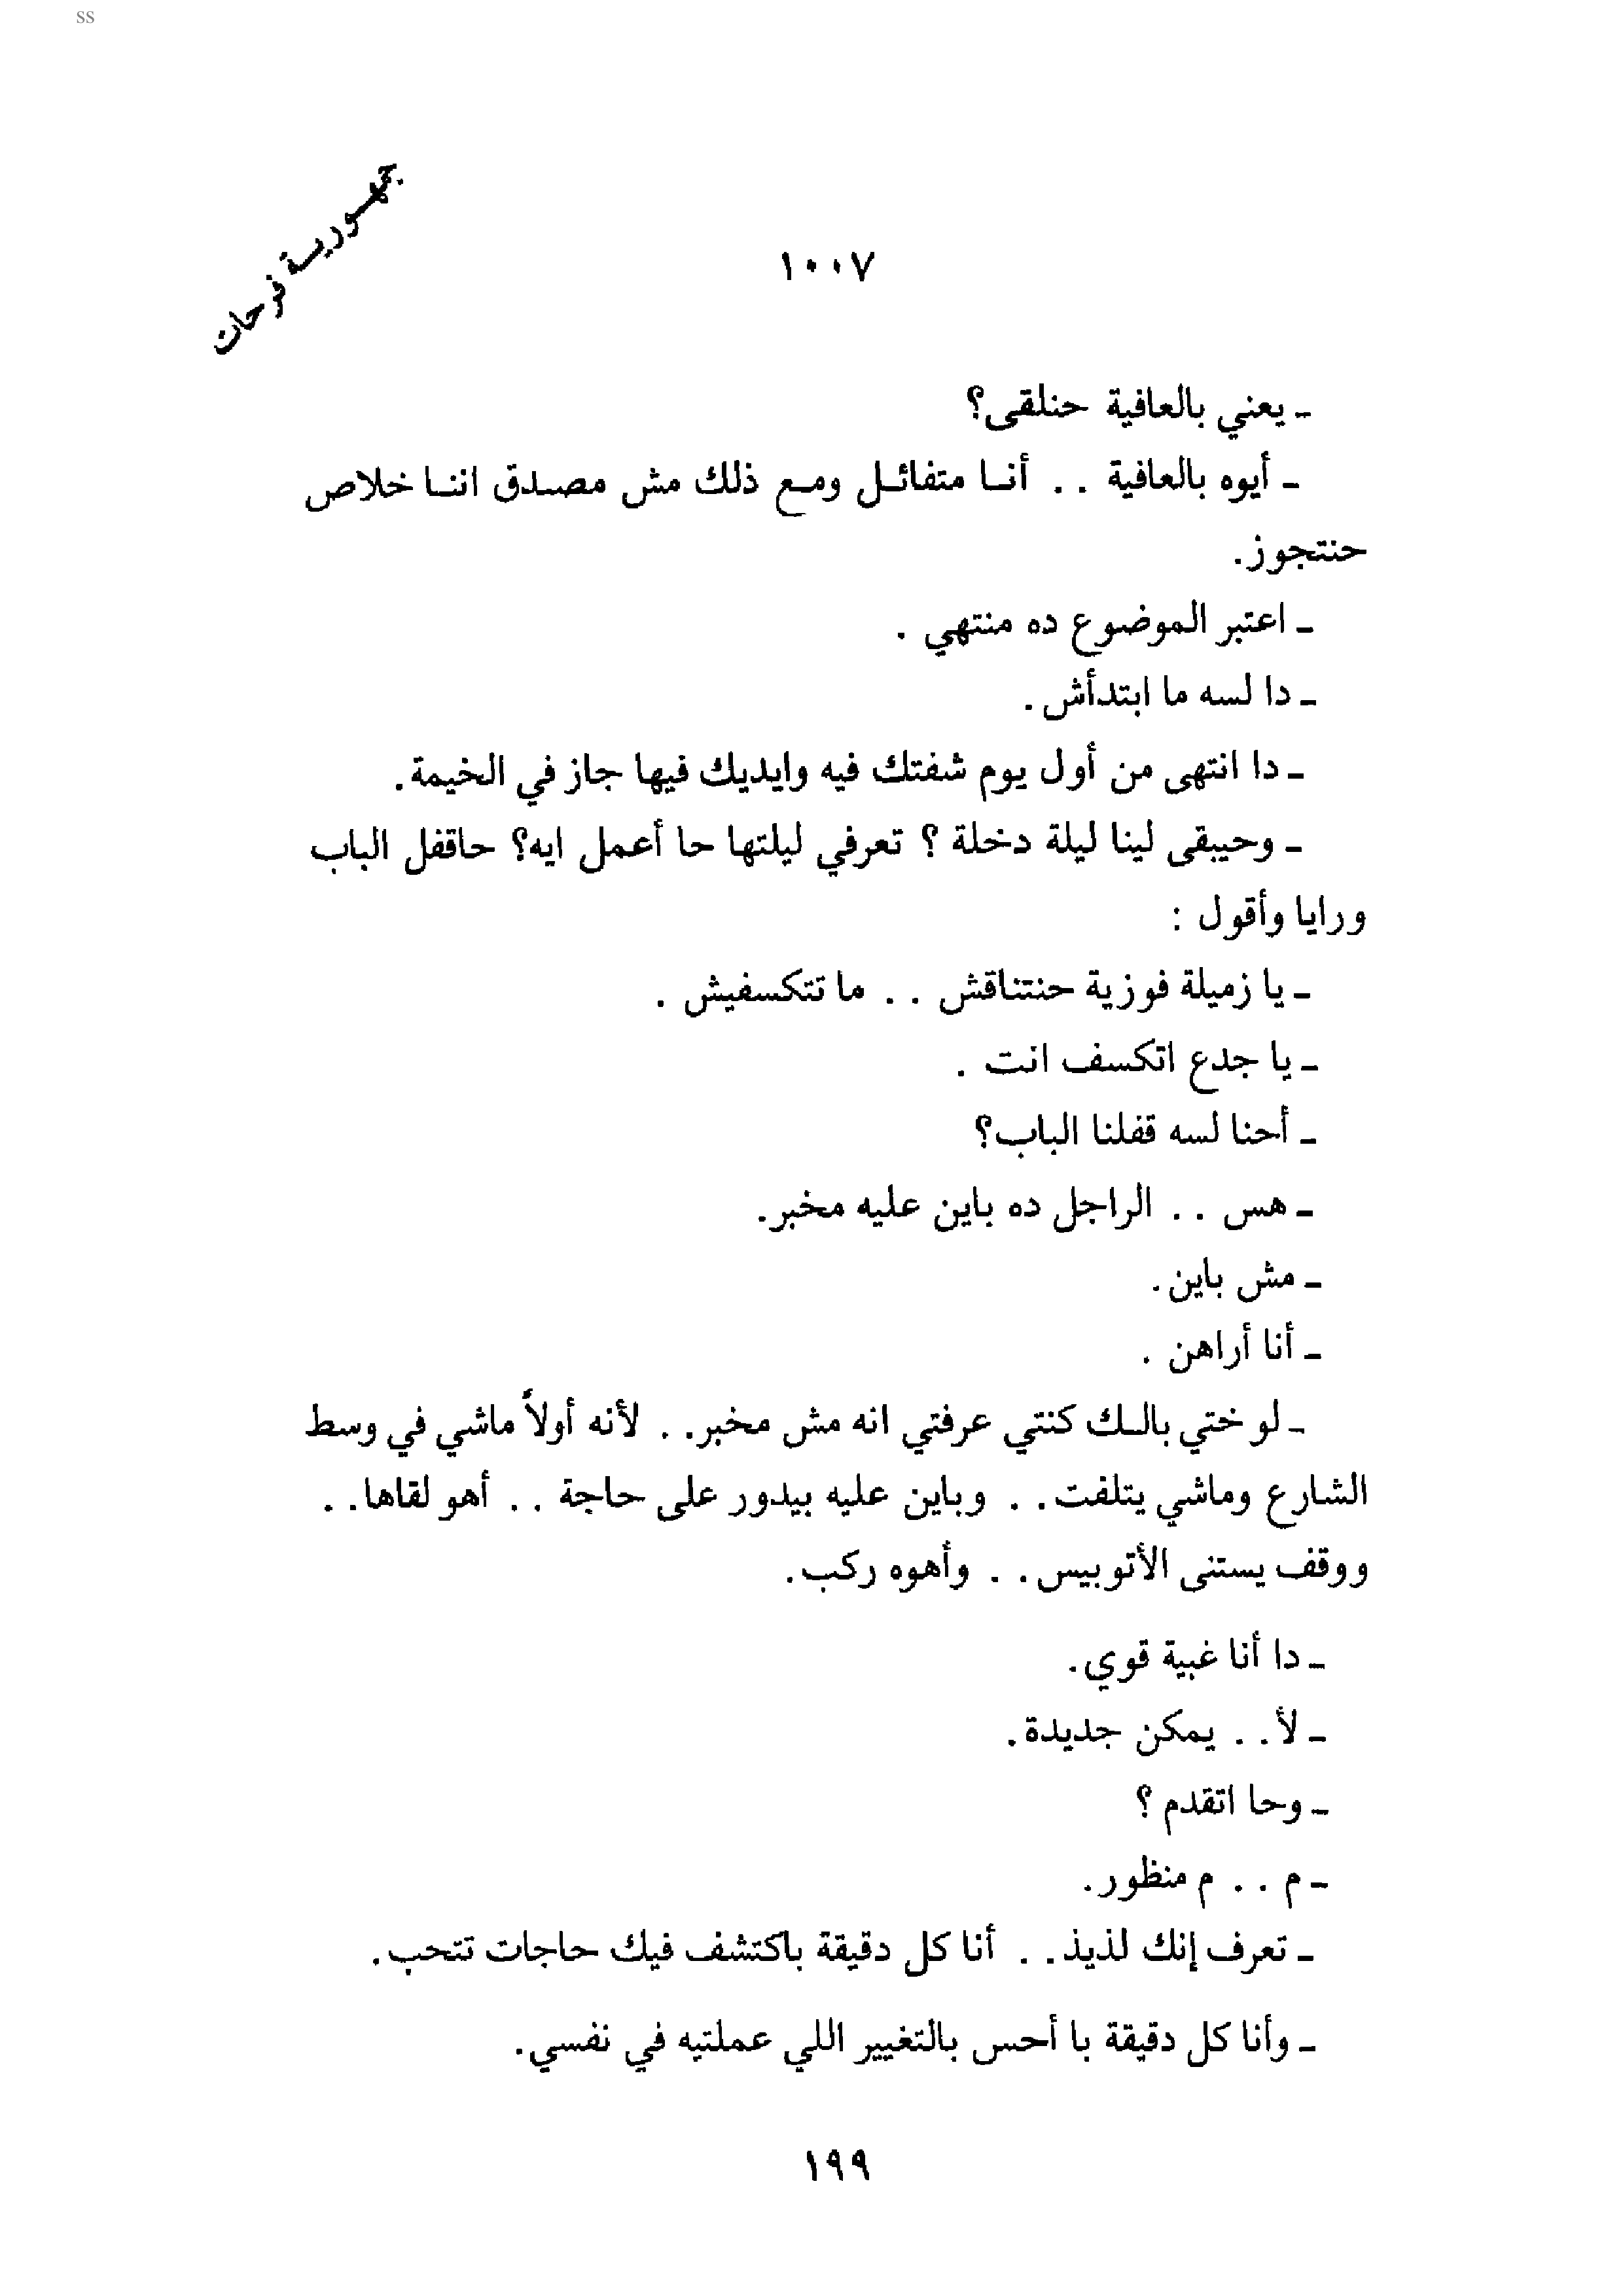 ss
جمهورية فرحات
١٠٠٧
ـ يعني بالعافية حنلقى؟
ـ أيوه بالعافية . . أنا متفائل ومع ذلك مش مصدق اننا خلاص
حنتجوز.
ـ اعتبر الموضوع ده منتهي .
ـ دا لسه ما ابتدأش .
ـ دا انتهى من أول يوم شفتك فيه وايديك فيها جاز في الخيمة.
ـ وحيبقى لينا ليلة دخلة ؟ تعرفي ليلتها حا أعمل ايه؟ حاقفل الباب
ورايا وأقول :
ـ يا زميلة فوزية حنتناقش . . ما تتكسفيش .
ـ يا جدع اتكسف انت .
ـ أحنا لسه قفلنا الباب؟
ـ هس . . الراجل ده باين عليه مخبر.
ـ مش باين.
ـ أنا أراهن .
ـ لو ختي بالك كنتي عرفتي انه مش مخبر. . لأنه أولاً ماشي في وسط
الشارع وماشي يتلفت. . وباين عليه بيدور على حاجة . . أهو لقاها. .
ووقف يستنى الأتوبيس. . وأهوه ركب.
ـ دا أنا غبية قوي.
ـ لأ. . يمكن جديدة.
ـ وحا اتقدم ؟
ـ م . . م منظور.
ـ تعرف إنك لذيذ. . أنا كل دقيقة باكتشف فيك حاجات تتحب.
ـ وأنا كل دقيقة با أحس بالتغيير اللي عملتيه في نفسي.
١٩٩